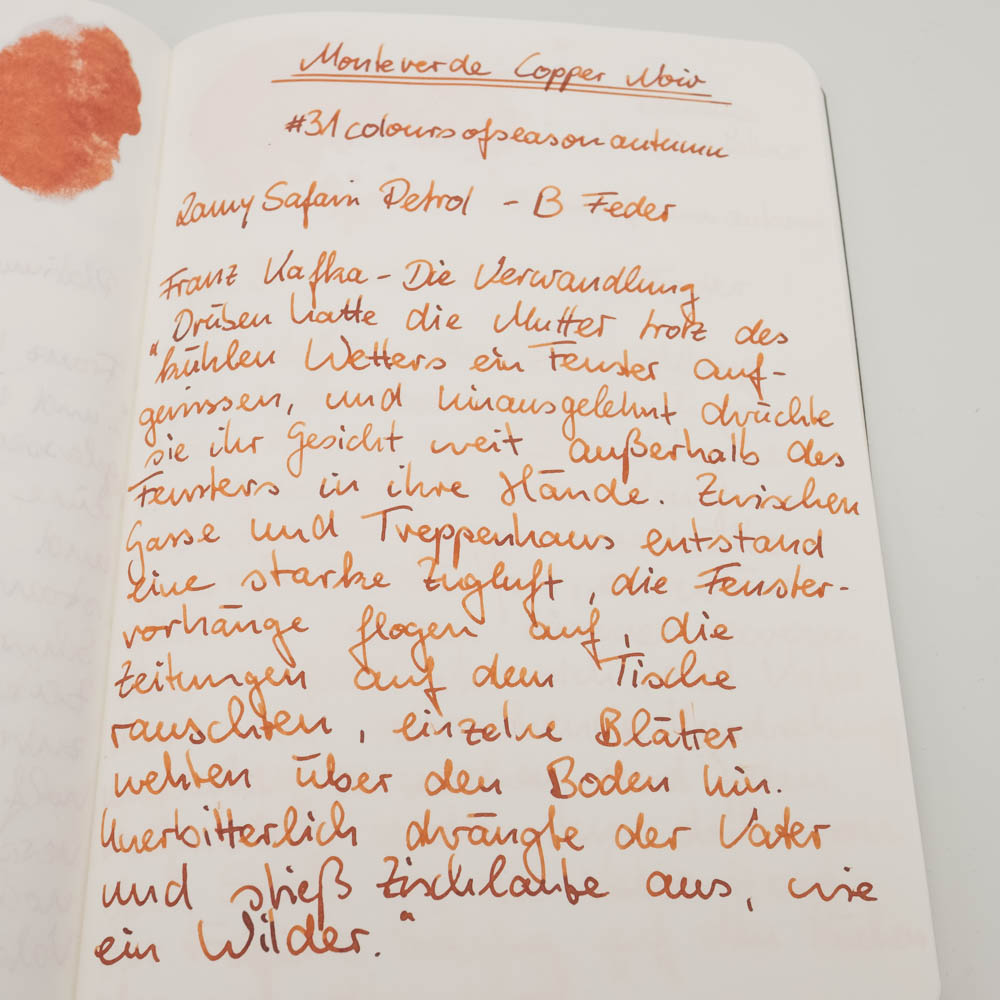 Monteverde Copper Noir
#31coloursofseasonautumn
Lamy Safari Petrol - B Feder
Franz Kafka - Die Verwandlung
"Drüben hatte die Mutter trotz des
kühlen Wetters ein Fenster auf-
gerissen, und hinausgelehnt drückte
sie ihr Gesicht weit außerhalb des
Fensters in ihre Hände. Zwischen
Gasse und Treppenhaus entstand
eine starke Zugluft, die Fenster-
vorhänge flogen auf, die
Zeitungen auf dem Tische
rauschten, einzelne Blätter
wehten über den Boden hin.
Unerbitterlich drängte der Vater
und stieß Zischlaute aus, wie
ein Wilder."